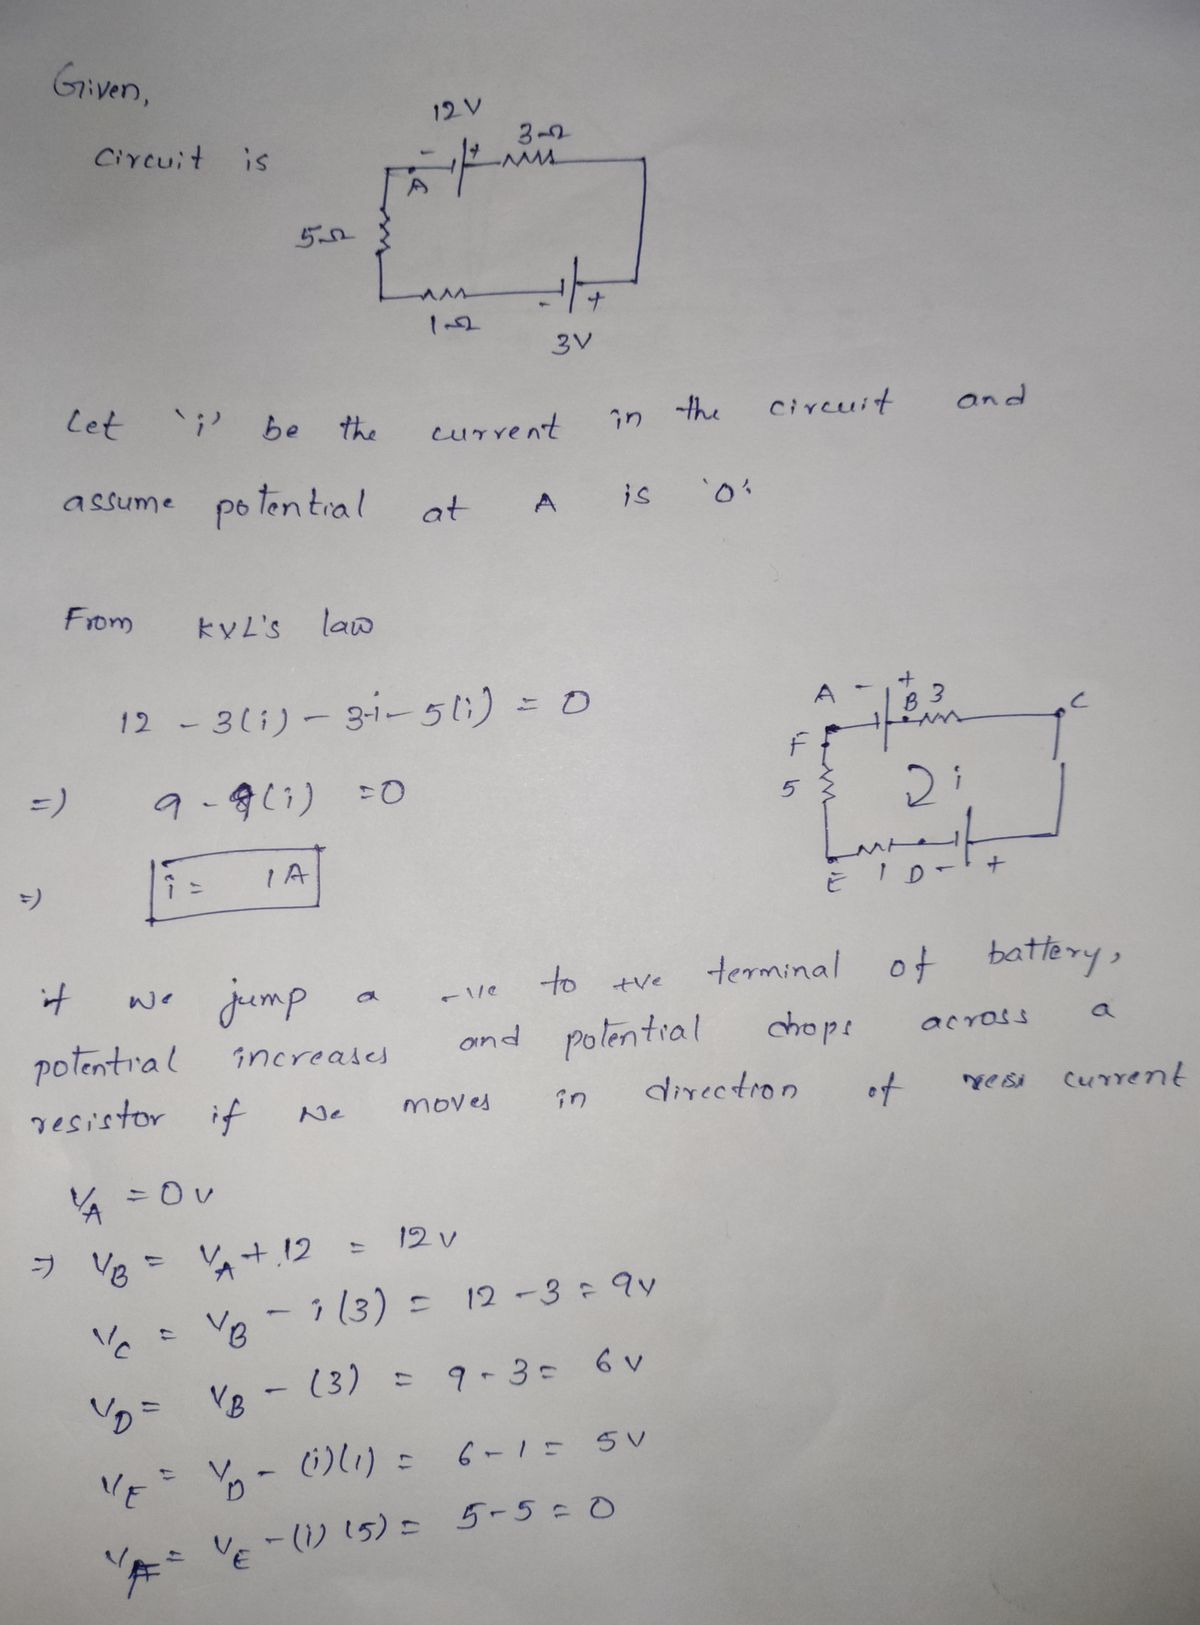 Given,
12V
3Ω
circuit is
- +
A
5Ω
1Ω
- +
3V
Let 'i' be the current in the circuit and
assume potential at A is '0'.
From KVL's law
12 - 3(i) - 3-i - 5(i) = 0
=> 9 - 9(i) = 0
=> i = 1A
A - + B 3 C
F
5 i
E 1 D - +
if we jump a -ve to +ve terminal of battery,
potential increases and potential drops across a
resistor if we moves in direction of current
VA = 0v
=> VB = VA + 12 = 12v
VC = VB - i(3) = 12 - 3 = 9v
VD = VB - (3) = 9 - 3 = 6v
VE = VD - (i)(1) = 6 - 1 = 5v
VF = VE - (i)(5) = 5 - 5 = 0